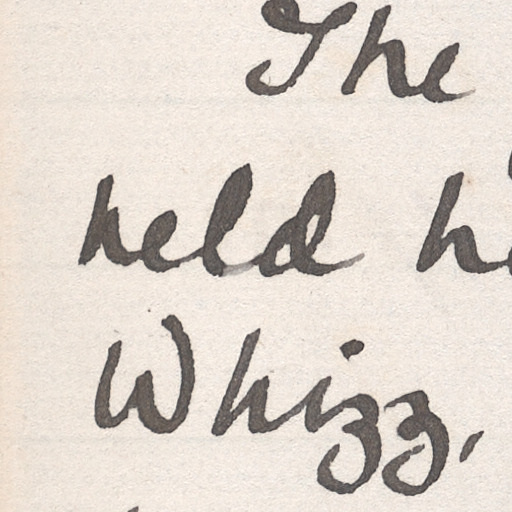 The
held h
Whizz,